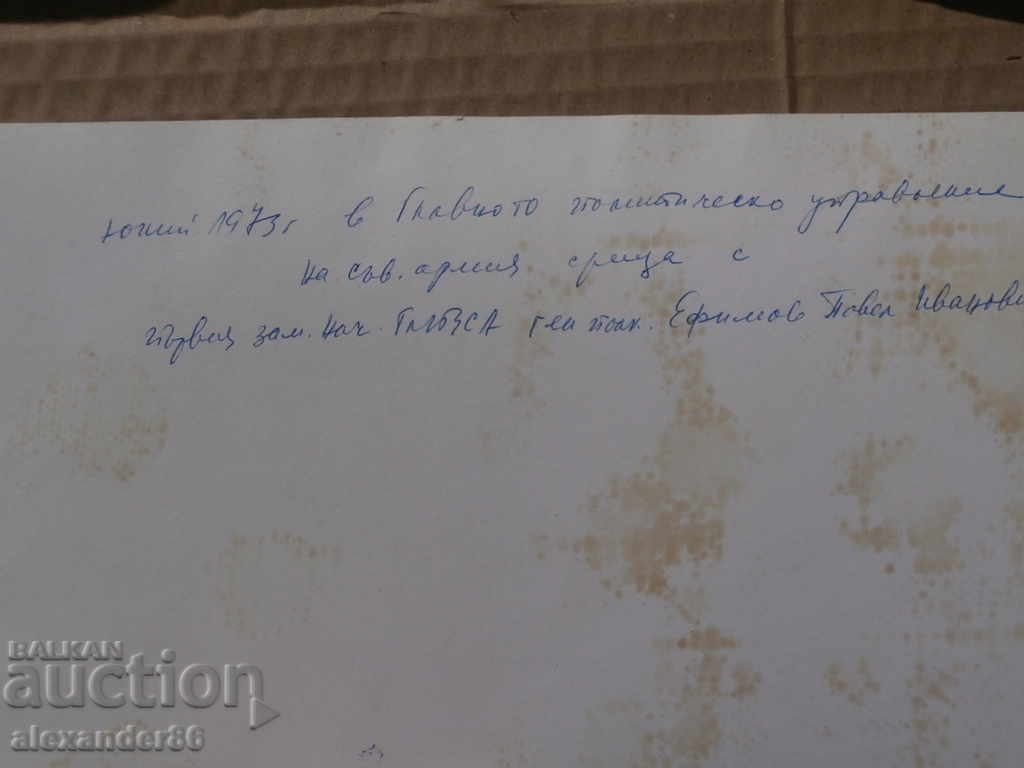 юний 1973 г в Главното политическо управление
на Съв. армия среща с
първия зам. нач. ген полк. Ефимов Павел Иванови
BALKAN
auction
alexander86